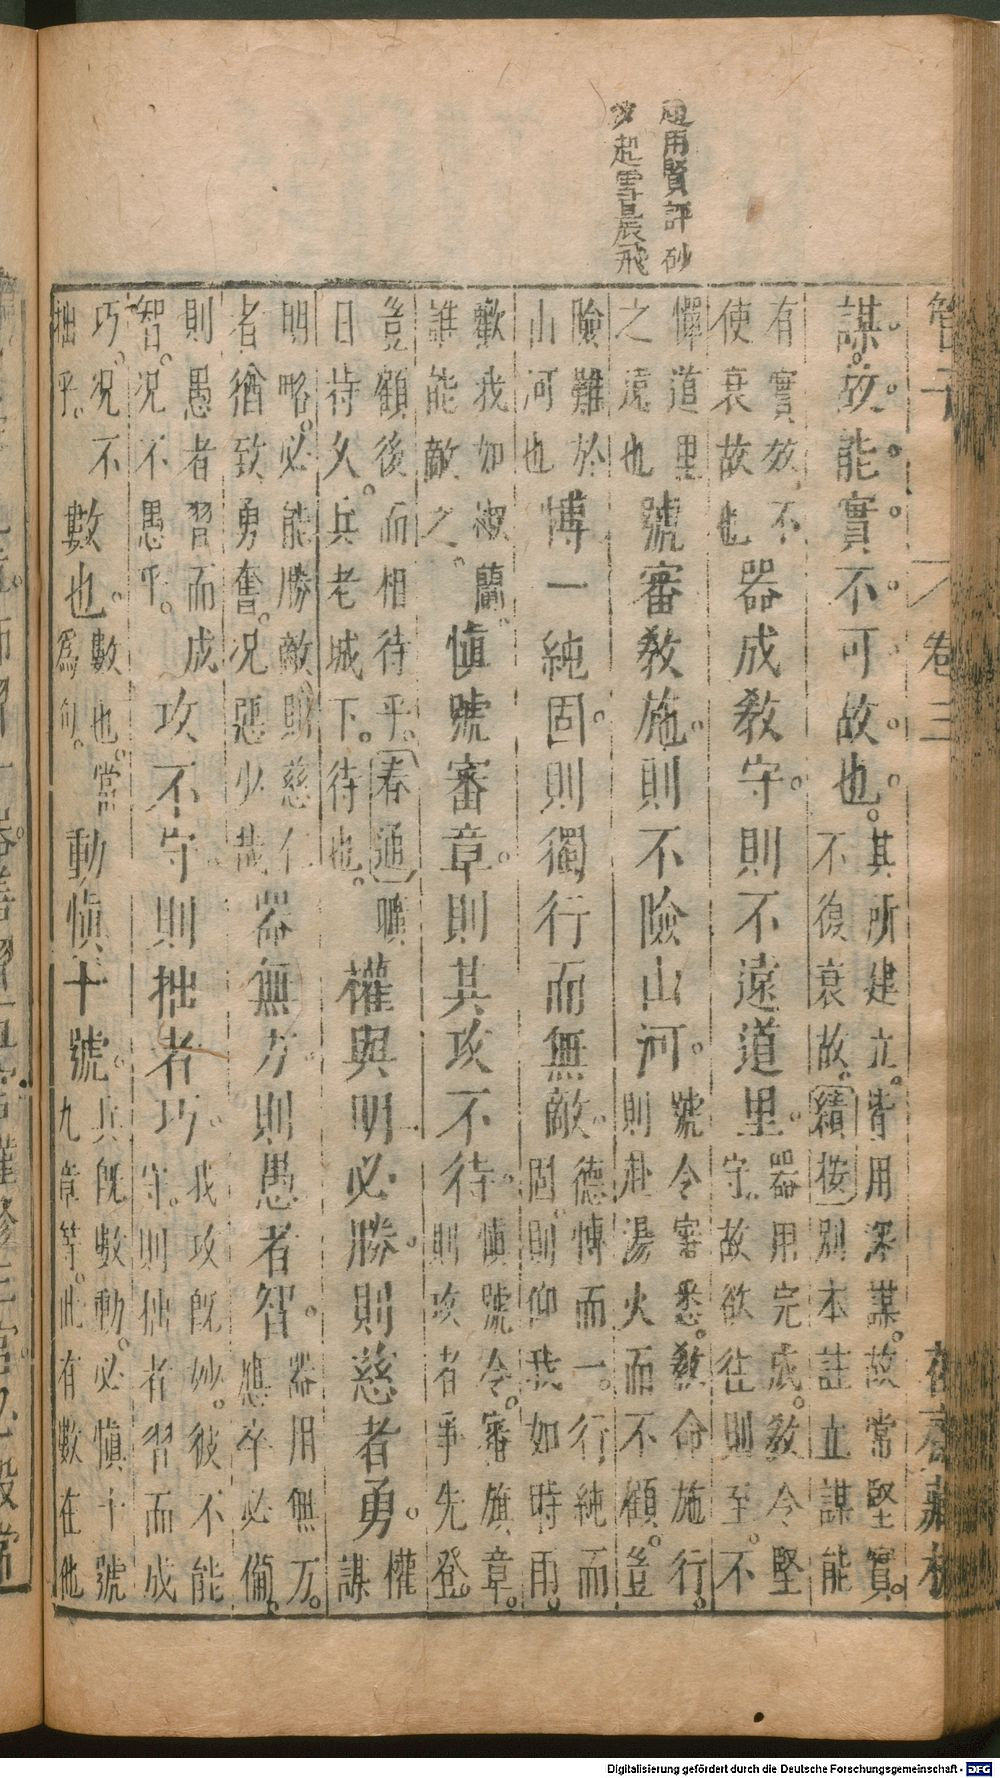 趙用賢評砂
礫起雪晨飛
管子 卷三 花齋藏板
謀故能實不可故也。其所建立。皆用深謀。故常堅實。
不復衰故。續按別本註立謀能
有實效不
使衰故也器成敎守。則不遠道里。器用完成。敎令堅
守。故欲往則至。不
憚道里
之遠也號審敎施。則不險山河。號令審悉。敎命施行。
則赴湯火而不顧。豈
險難於
山河也博一純固。則獨行而無敵。德博而一。行純而
固。則仰我如時雨。
歡我如椒蘭。
誰能敵之。愼號審章。則其攻不待。愼號令。審旗章。
則攻者爭先登。
豈顧後而相待乎。春通曠
日持久。兵老城下。待也。權與明必勝。則慈者勇。權
謀
明略。必能勝敵。則慈仁
者猶致勇奮。况惡少哉器無方。則愚者智。器用無方。
應卒必備。
則愚者習而成
智。况不愚乎。攻不守。則拙者巧。我攻旣妙。彼不能
守。則拙者習而成
巧。况不
拙乎。數也。數也。當
爲句。動愼十號。兵旣數動。必愼十號
九章等。此有數在他
Digitalisierung gefördert durch die Deutsche Forschungsgemeinschaft - DFG